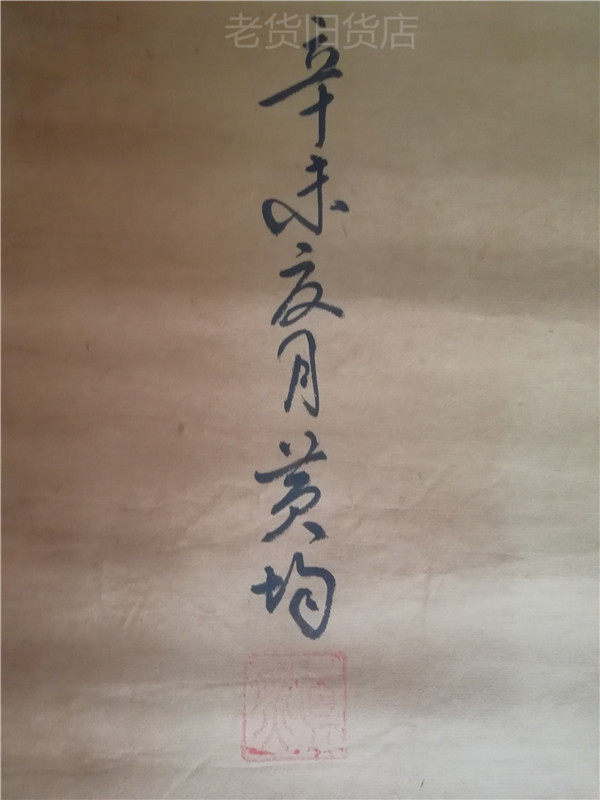 老货旧货店
辛未夏月黄均